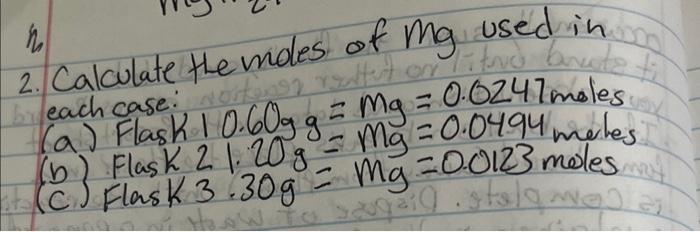 2. Calculate the moles of Mg used in
each case:
(a) Flask 1 0.60g g = Mg = 0.0247 moles
(b) Flask 2 1.20g = Mg = 0.0494 moles
(c) Flask 3 .30g = Mg = 0.0123 moles